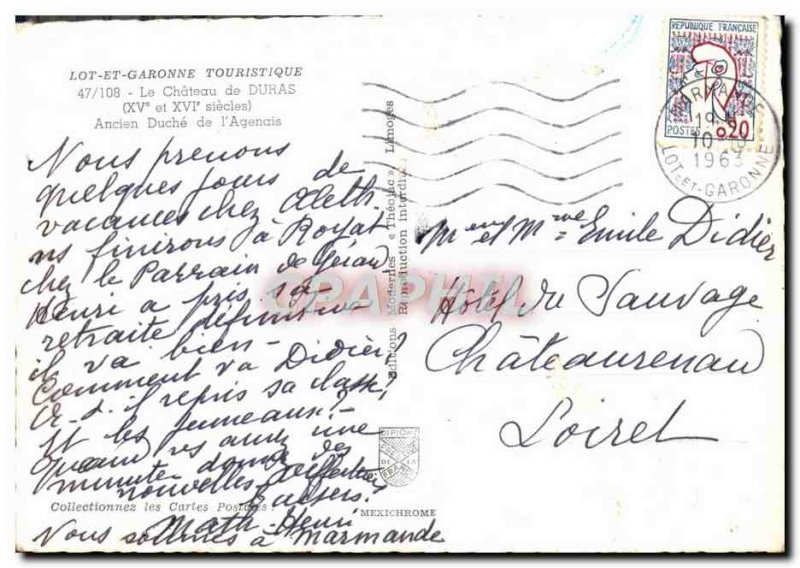 LOT-ET-GARONNE TOURISTIQUE
47/108 - Le Château de DURAS
(XVe et XVIe siècles)
Ancien Duché de l'Agenais
Nous prenons
quelques jours de
vacances chez
ns finirons à Royat
chez le Parrain de
Henri a pris sa
retraite définitive
il va bien -
Comment va Didier?
A-t-il repris sa classe?
Et les Jumeaux? -
Quand vs aurez une
minute donnez des
nouvelles. Affectueux
Baisers!
Math. Henri
Nous sommes à Marmande
Collectionnez les Cartes Postales !
Editions Modernes « Théojac », Limoges
Reproduction Interdite
MEXICHROME
REPUBLIQUE FRANÇAISE
POSTES
0,20
MARMANDE
19 H
10
1963
LOT-ET-GARONNE
Mr et Mme Emile Didier
Hôtel du Sauvage
Châteaurenau
Loiret
CPAPHIL